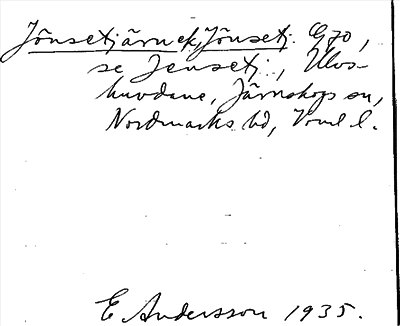 Jönsetjärnek, Jönsetj. G70,
se Jensetj., Ulvs-
huvdane, Järnskogs sn,
Nordmarks hd, Vrml l.
E Andersson 1935.